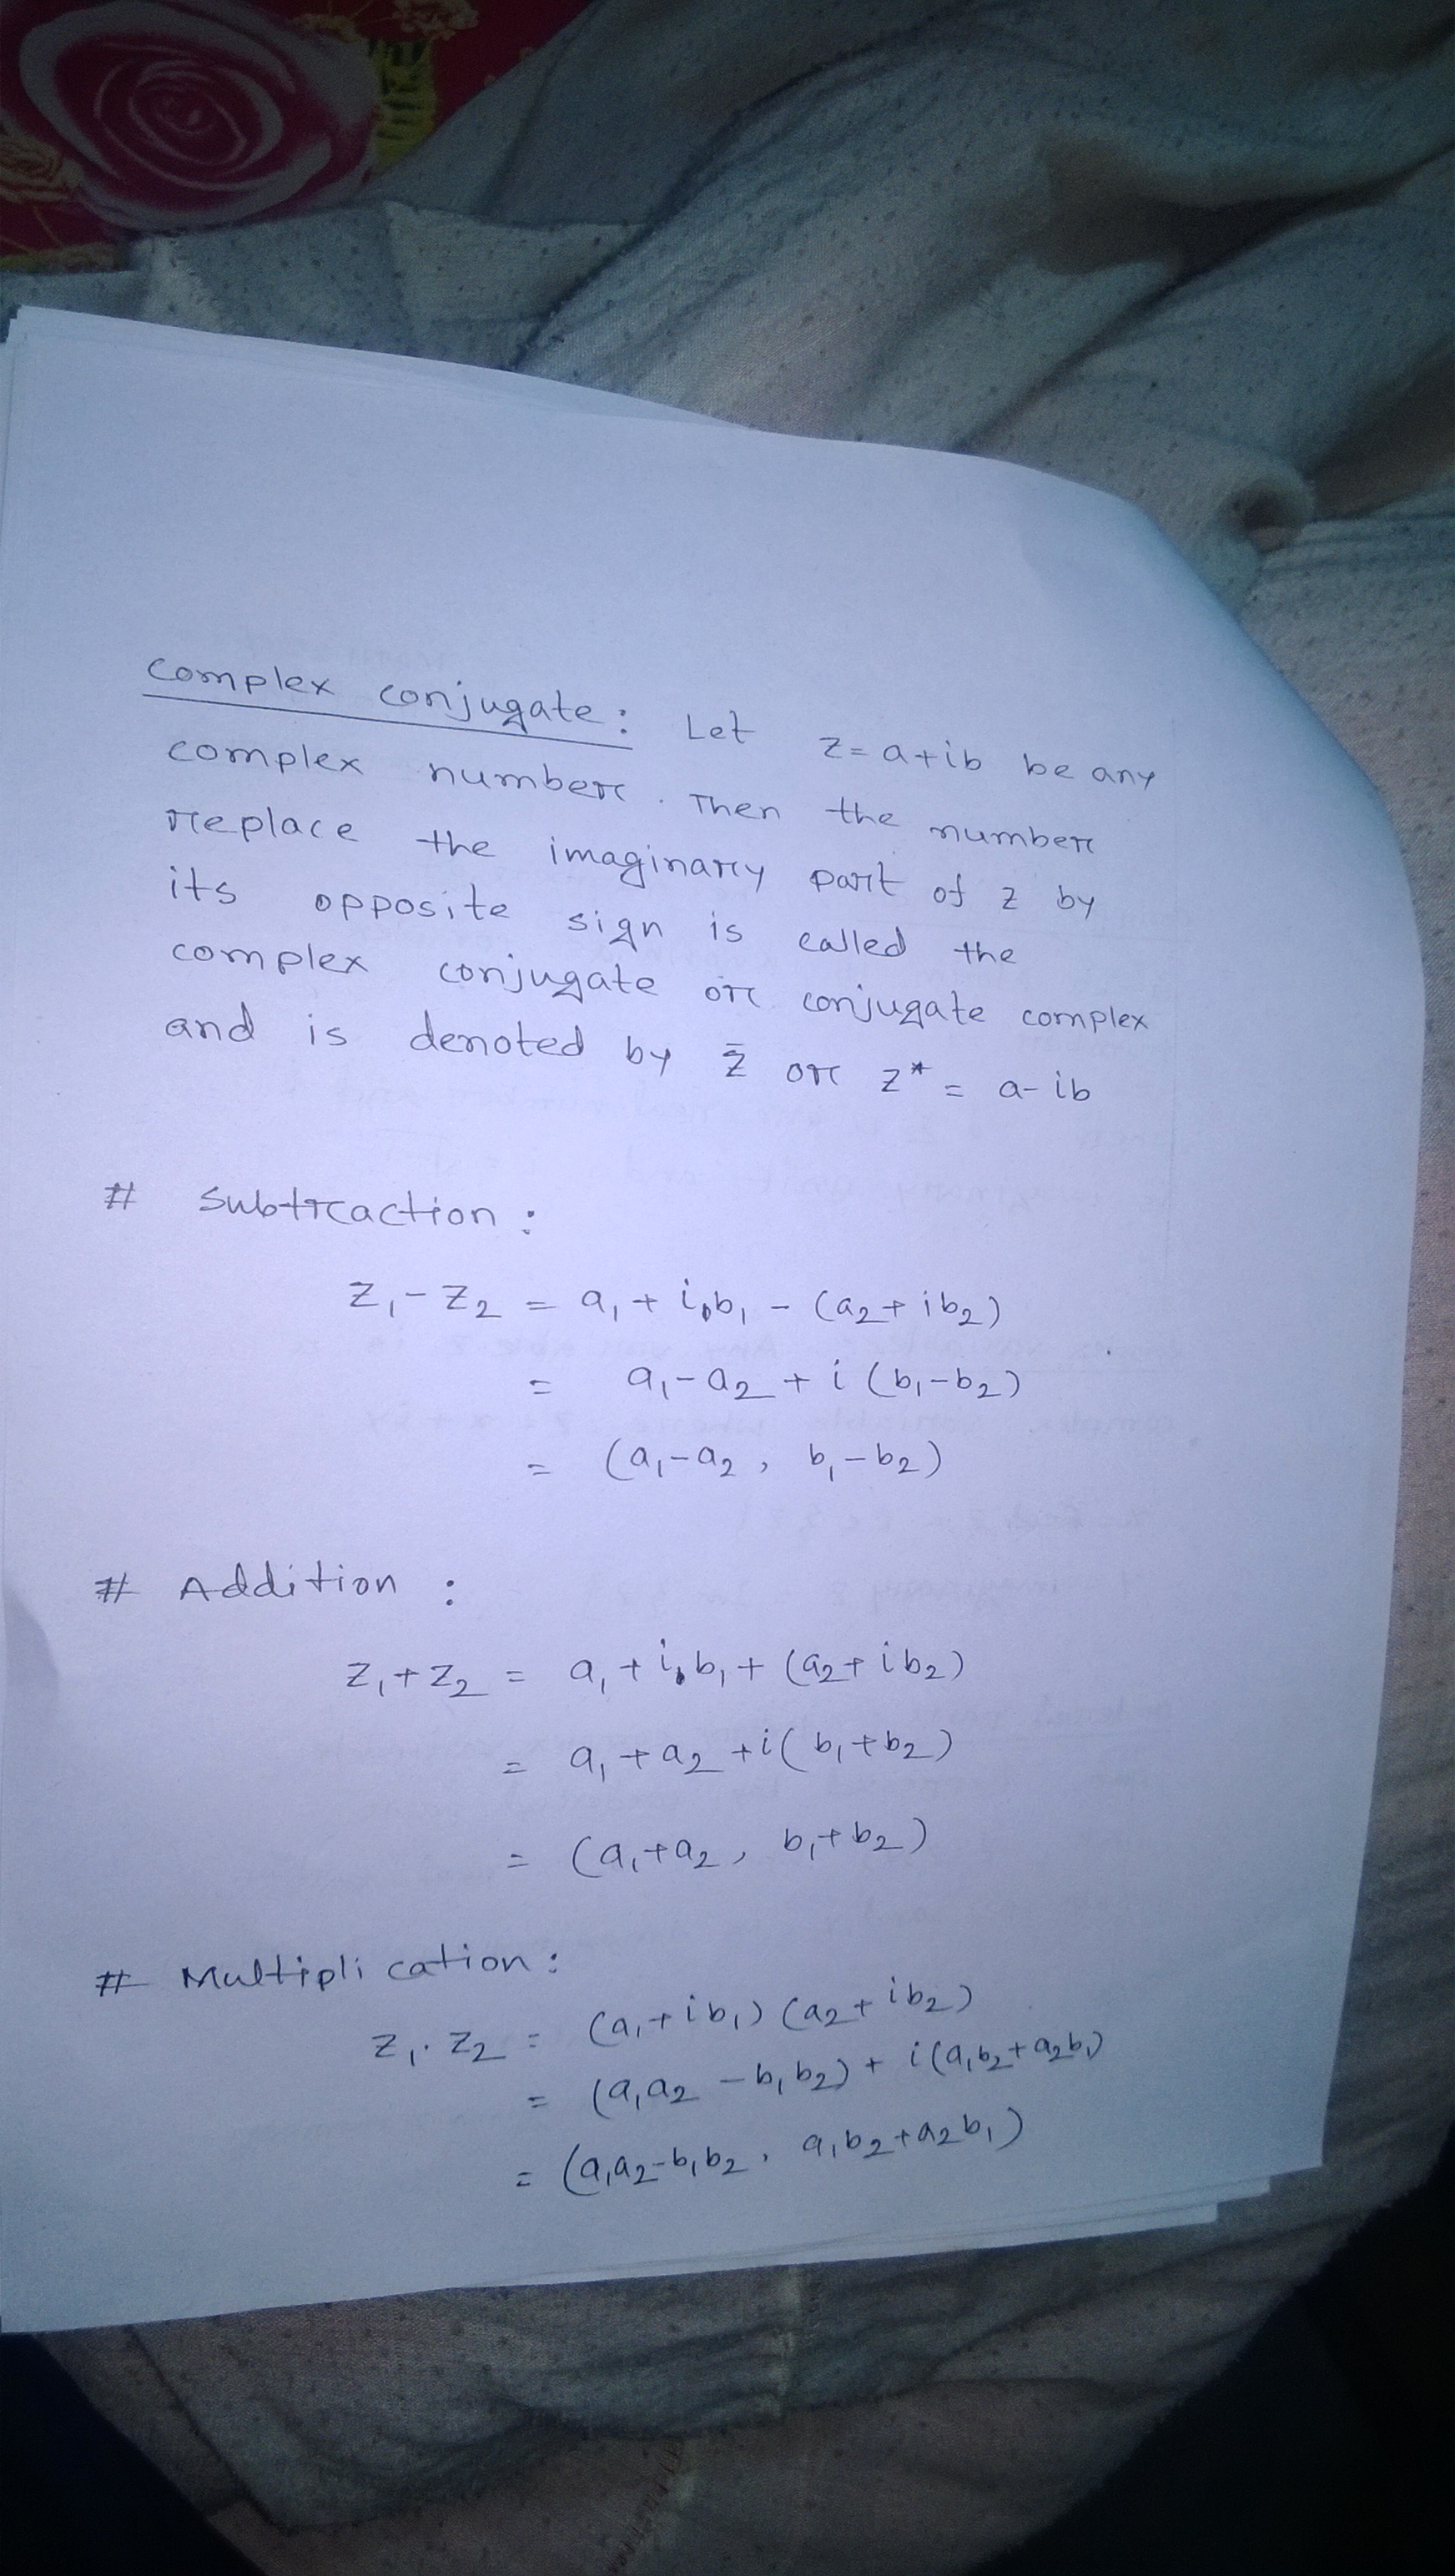 Complex conjugate: Let z = a+ib be any
complex number. Then the number
replace the imaginary part of z by
its opposite sign is called the
complex conjugate or conjugate complex
and is denoted by z̄ or z* = a-ib
# Subtraction:
z₁ - z₂ = a₁ + ib₁ - (a₂ + ib₂)
= a₁ - a₂ + i (b₁ - b₂)
= (a₁ - a₂, b₁ - b₂)
# Addition :
z₁ + z₂ = a₁ + ib₁ + (a₂ + ib₂)
= a₁ + a₂ + i(b₁ + b₂)
= (a₁ + a₂, b₁ + b₂)
# Multiplication:
z₁. z₂ = (a₁ + ib₁) (a₂ + ib₂)
= (a₁a₂ - b₁b₂) + i(a₁b₂ + a₂b₁)
= (a₁a₂ - b₁b₂, a₁b₂ + a₂b₁)